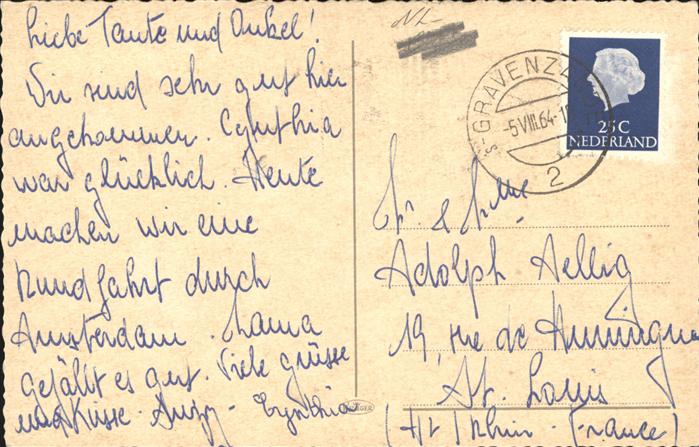 Liebe Tante und Onkel!
Wir sind sehr gut hier
angekommen. Cynthia
war glücklich. Heute
machen wir eine
Rundfahrt durch
Amsterdam. Mama
gefällt es gut. Viele grüsse
und Küsse. Suzy - Cynthia
NL
's-GRAVENZANDE
-5.VIII.64-1
2
25C
NEDERLAND
Mr. & Mme
Adolph Aellig
19, rue de Huningue
St. Louis
(Ht/Rhin - France)